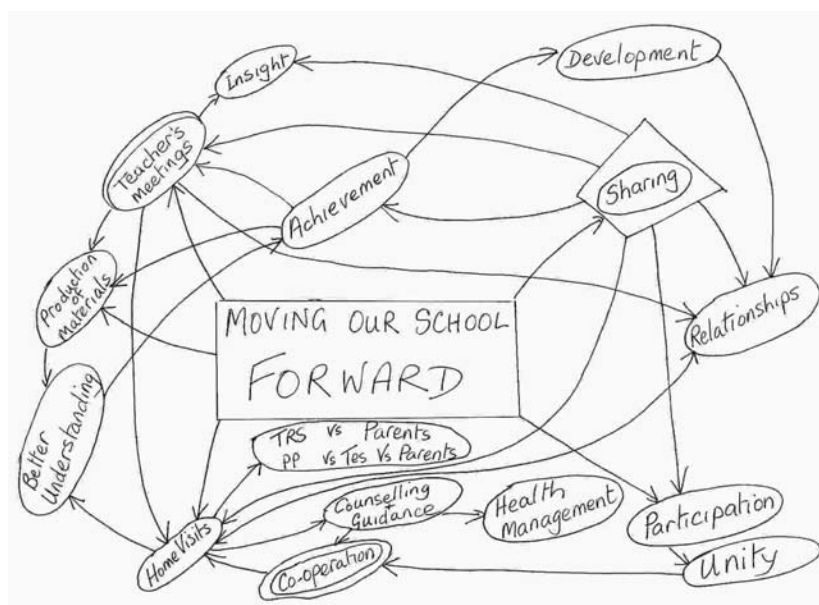 Insight
Development
Teacher's
meetings
Achievement
Sharing
Production
of
Materials
MOVING OUR SCHOOL
FORWARD
Relationships
Better
Understanding
TRS vs Parents
PP vs Tes Vs Parents
Counselling
Guidance
Health
Management
Participation
Home Visits
Co-operation
Unity